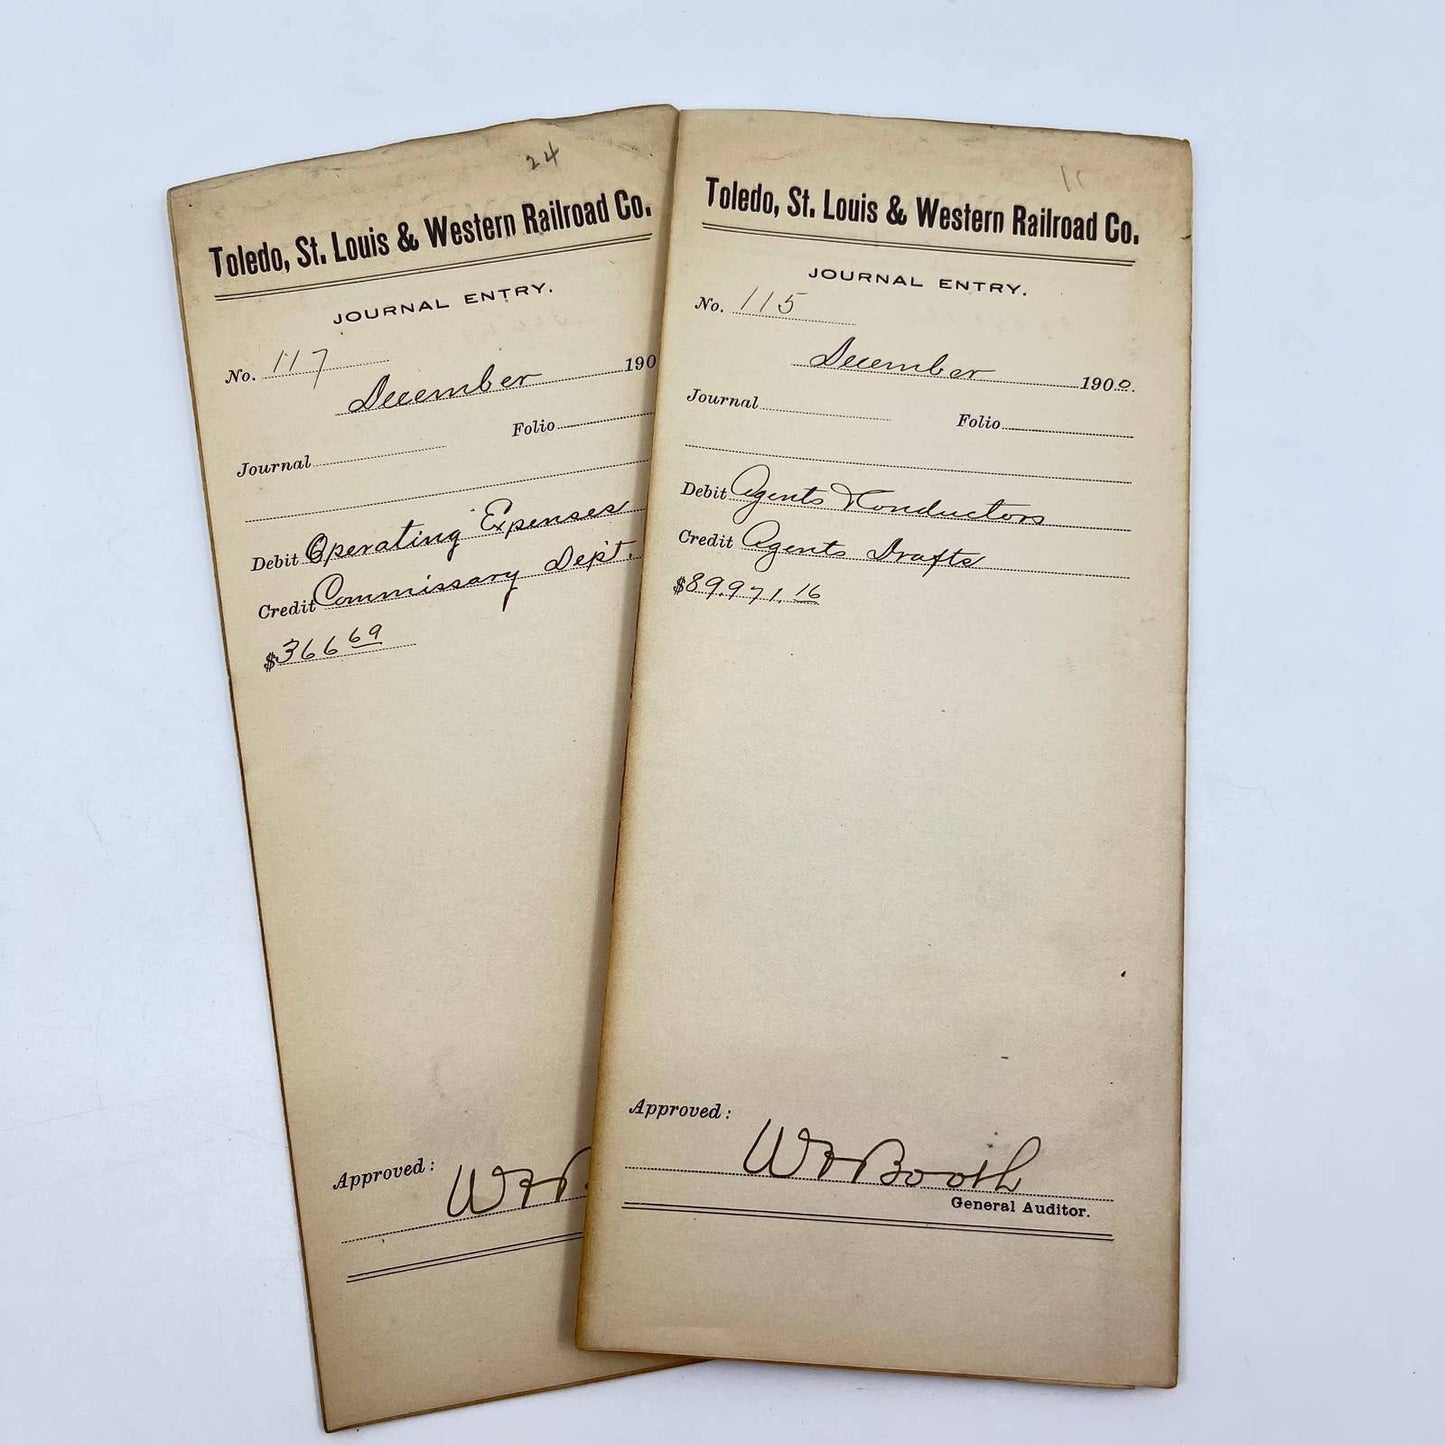 24
Toledo, St. Louis & Western Railroad Co.
JOURNAL ENTRY.
No. 117
December 190
Folio
Journal
Debit Operating Expenses
Credit Commissary Dep't.
$366 69
Approved:
W H B
11
Toledo, St. Louis & Western Railroad Co.
JOURNAL ENTRY.
No. 115
December 1900.
Journal Folio
Debit Agents & Conductors
Credit Agents Drafts
$89,971.16
Approved:
Booth
General Auditor.